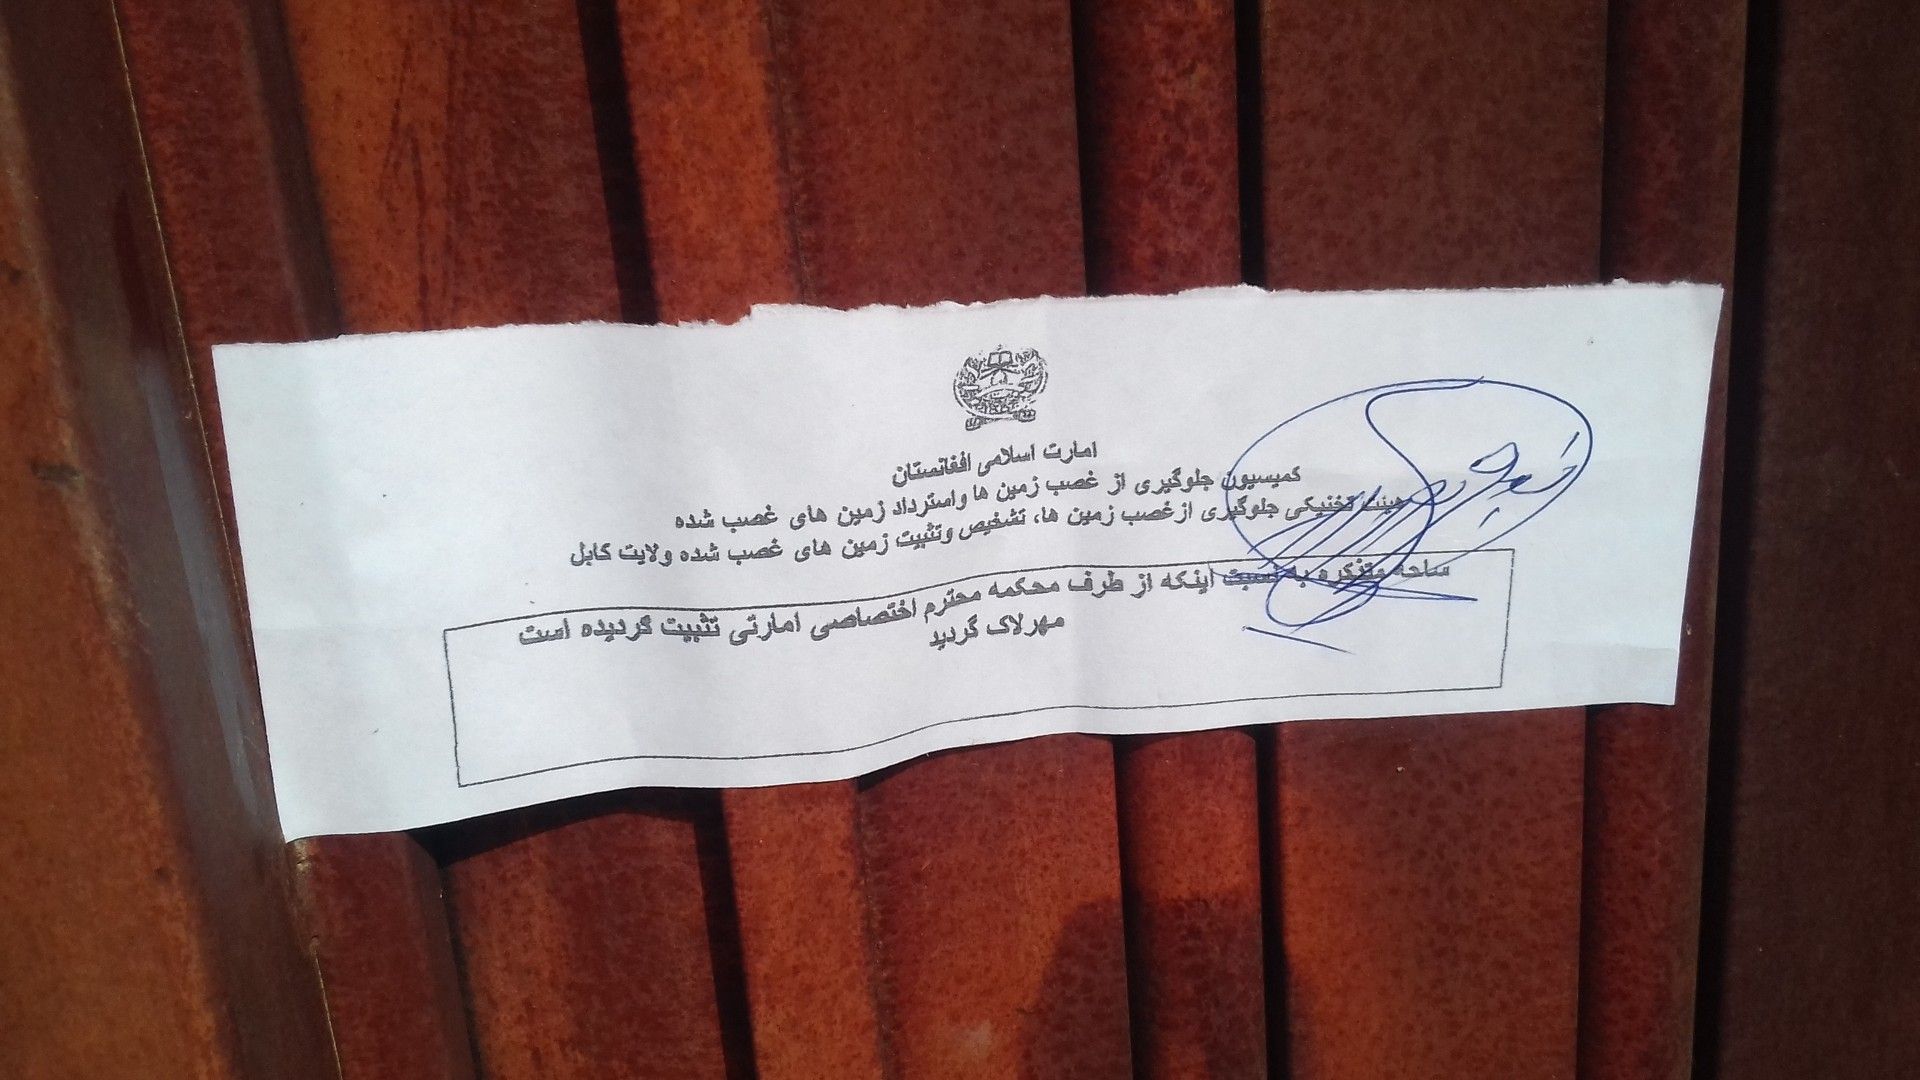 امارت اسلامی افغانستان
کمیسیون جلوگیری از غصب زمین ها واسترداد زمین های غصب شده
هیئت تخنیکی جلوگیری ازغصب زمین ها، تشخیص وتثبیت زمین های غصب شده ولایت کابل
ساحه متذکره به نسبت اینکه از طرف محکمه محترم اختصاصی امارتی تثبیت گردیده است
مهرلاک گردید